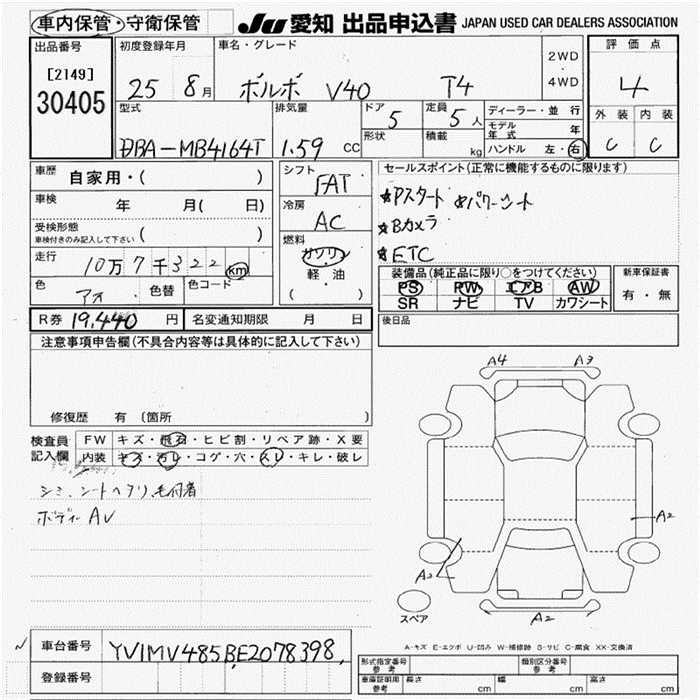 車内保管・守衛保管 JU 愛知 出品申込書 JAPAN USED CAR DEALERS ASSOCIATION
出品番号 初度登録年月 車名・グレード 2WD・4WD 評価点
[2149] 30405 25 8月 ボルボ V40 T4 4
型式 排気量 ドア 5 定員 5人 ディーラー・並行 外装 内装
モデル年式 年
DBA-MB4164T 1.59 CC 形状 積載 kg ハンドル 左・右 C C
車歴 自家用・( ) シフト FAT セールスポイント(正常に機能するものに限ります)
車検 年 月( 日) 冷房 AC ★Pスタート ★パワーシート
受検形態 ★Bカメラ
車検付きのみ記入して下さい 燃料 ガソリン ★ETC
走行 10万7千322km 軽・油 装備品(純正品に限り○をつけてください) 新車保証書
色 アオ 色替 色コード ( ・ ) PS PW エアB AW 有・無
SR ナビ TV カワシート
R券 19,440 円 名変通知期限 月 日 後日品
注意事項申告欄(不具合内容等は具体的に記入して下さい)
A4 A3
修復歴 有 〔箇所 〕
検査員記入欄 FW キズ・飛石・ヒビ割・リペア跡・X要
内装 キズ・汚レ・コゲ・穴・スレ・キレ・破レ
シミ、シートヘタリ、毛付着
ボディー AU
A2
A2
スペア A2
A-キズ E-エクボ U-凹み W-補修跡 S-サビ C-腐食 XX-交換済
車台番号 YV1MV485BE2078398
形式指定番号 参考 類別区分番号 参考
登録番号 車庫証明用 参考 長さ cm 幅 cm 高さ cm